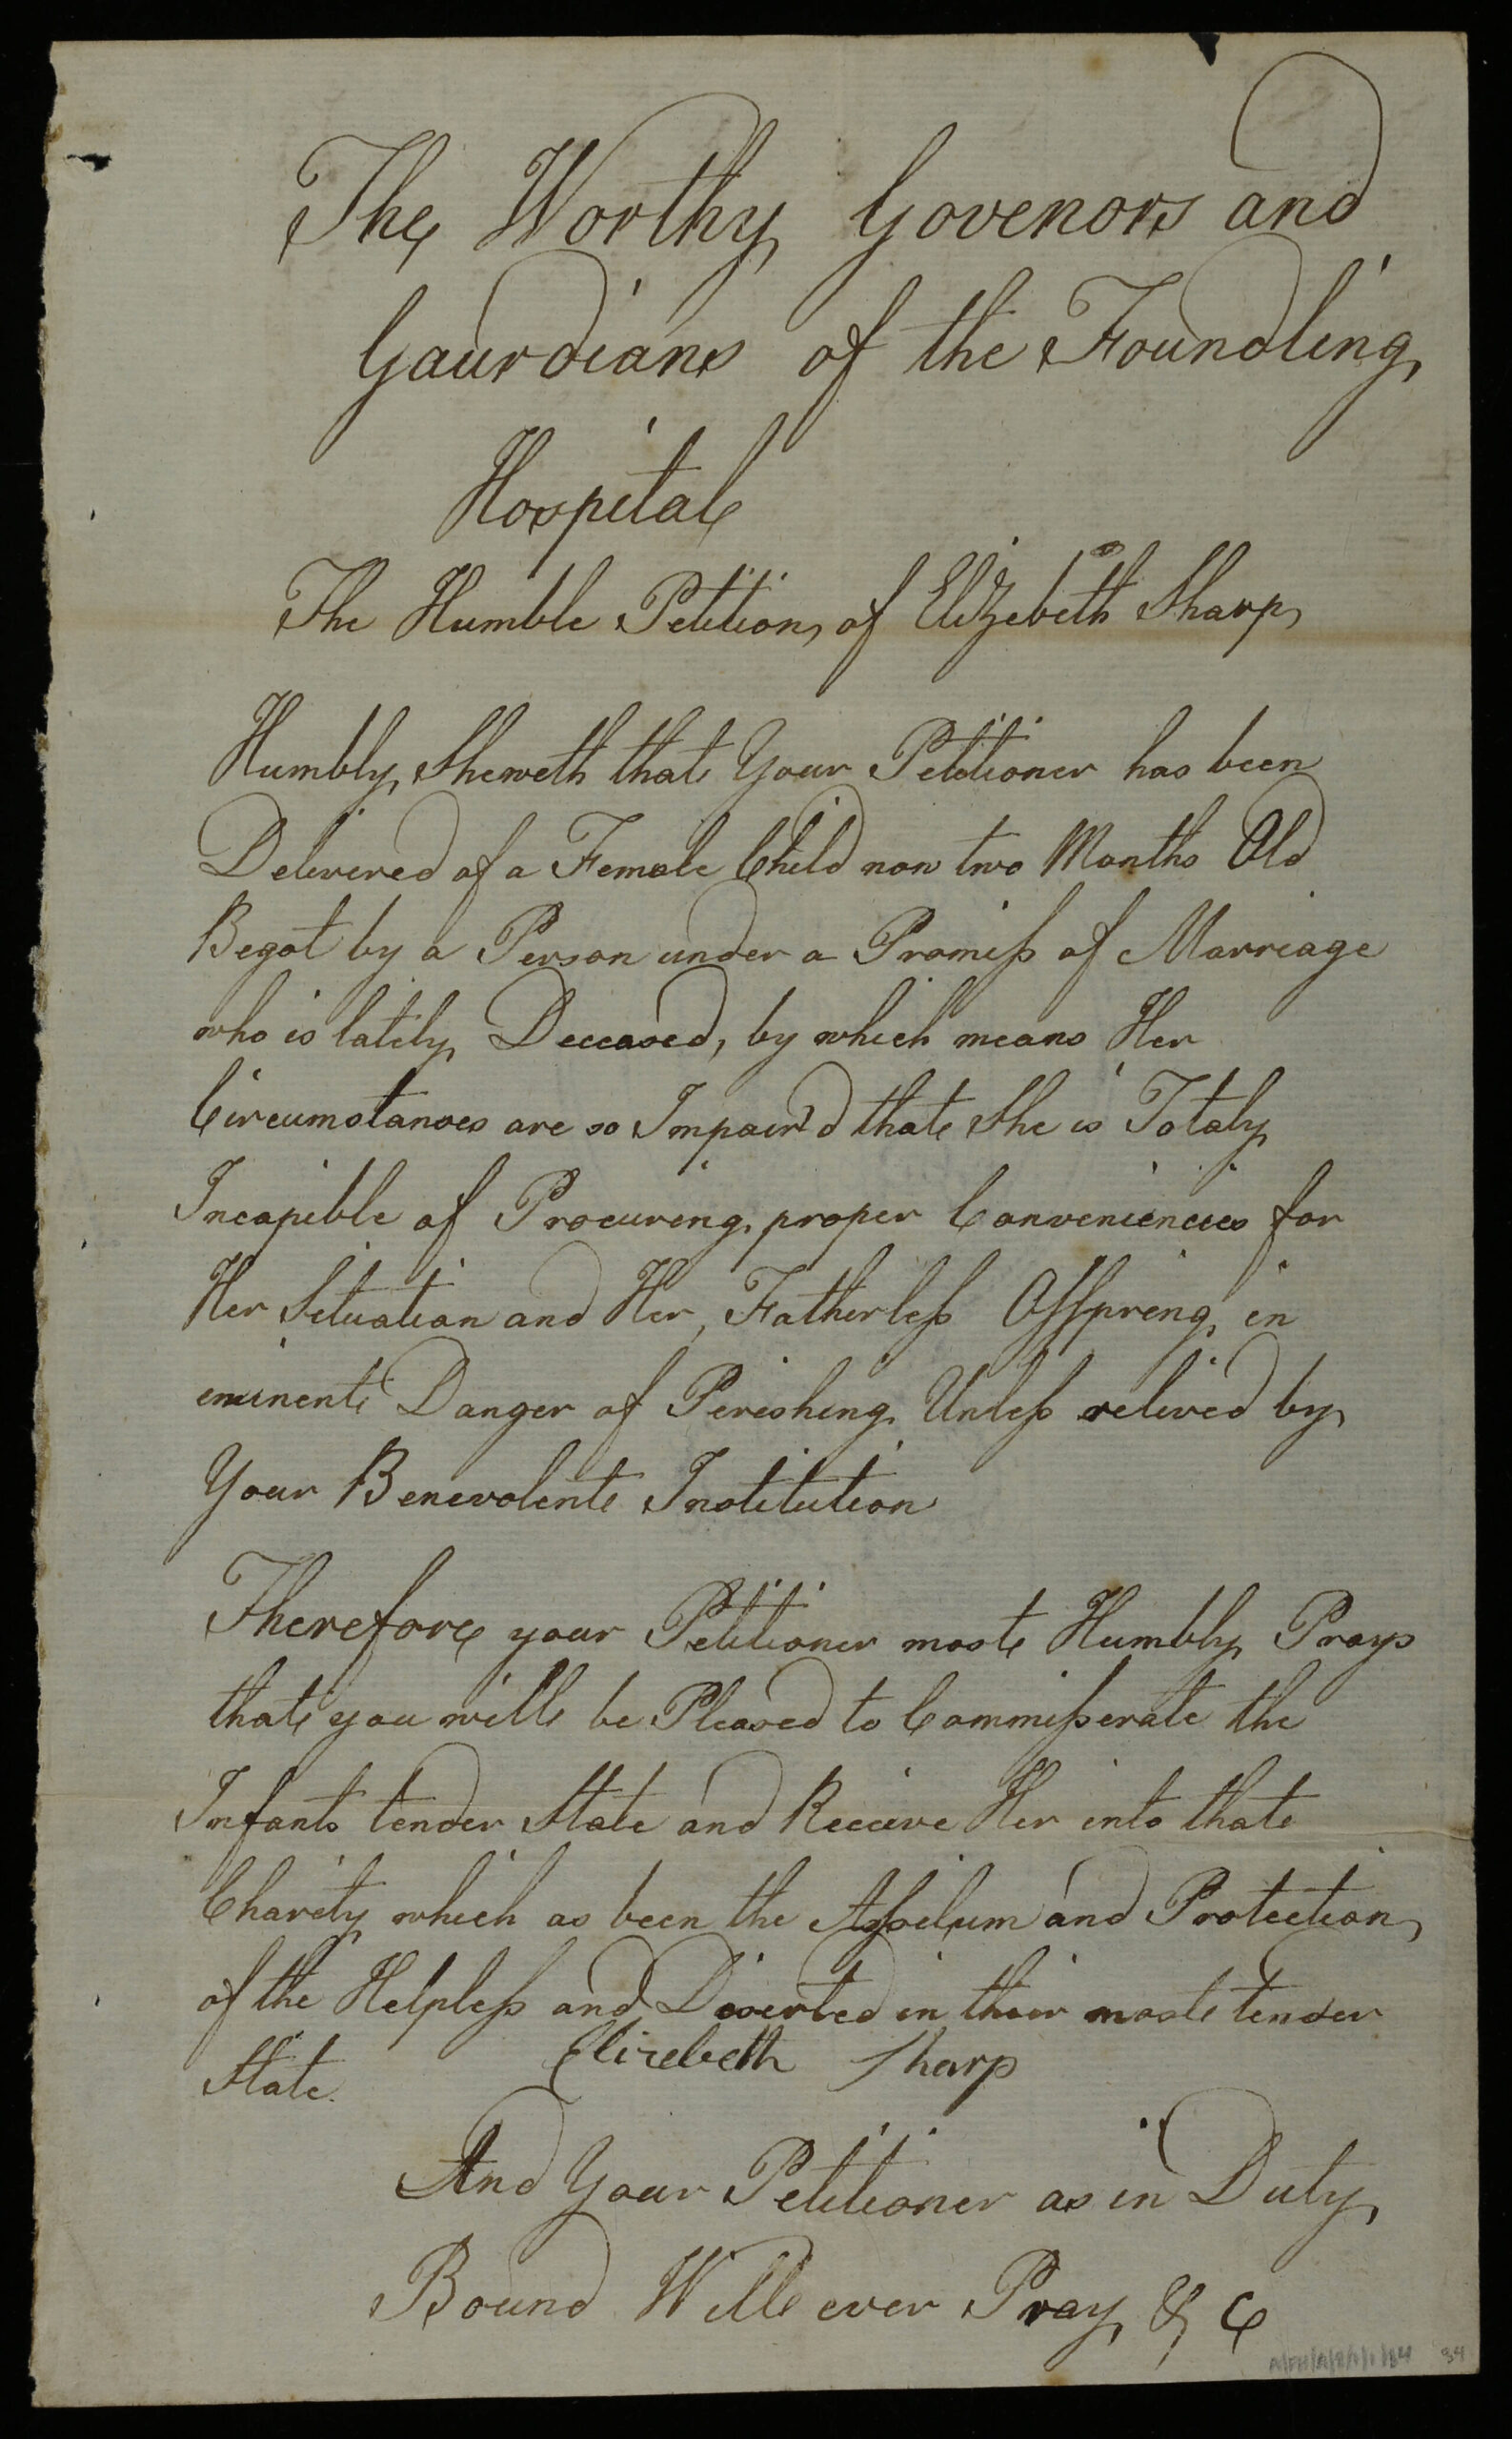 The Worthy Govenors and
Gaurdians of the Foundling
Hospital
The Humble Petition of Elizebeth Sharp
Humbly Sheweth that Your Petitioner has been
Delivered of a Female Child now two Months Old
Begot by a Person under a Promiss of Marriage
who is latily Deceased, by which means Her
Circumstances are so Impair'd that She is Totaly
Incapible of Procuring proper Conveniencies for
Her Situation and Her, Fatherless Offspring in
eminent Danger of Perishing Unless relived by
Your Benevolent Institution
Therefore your Petitioner most Humbly Prays
that you will be Pleased to Commisserate the
Infants tender State and Receive Her into that
Charity which as been the Assilum and Protection
of the Helpless and Diserted in their most tender
State.
Elizebeth Sharp
And Your Petitioner as in Duty
Bound Will ever Pray & C
A/FH/A/8/1/1/34 34